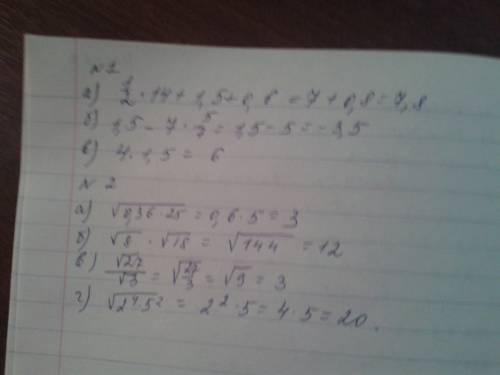 №1
а) 1/2 · 14 + 1,5 + 0,6 = 7 + 0,8 = 7,8
б) 1,5 - 7 · 5/7 = 1,5 - 5 = -3,5
в) 4 · 1,5 = 6
№2
а) √0,36 · 25 = 0,6 · 5 = 3
б) √8 · √18 = √144 = 12
в) √27/√3 = √27/3 = √9 = 3
г) √2⁴5² = 2² · 5 = 4 · 5 = 20.